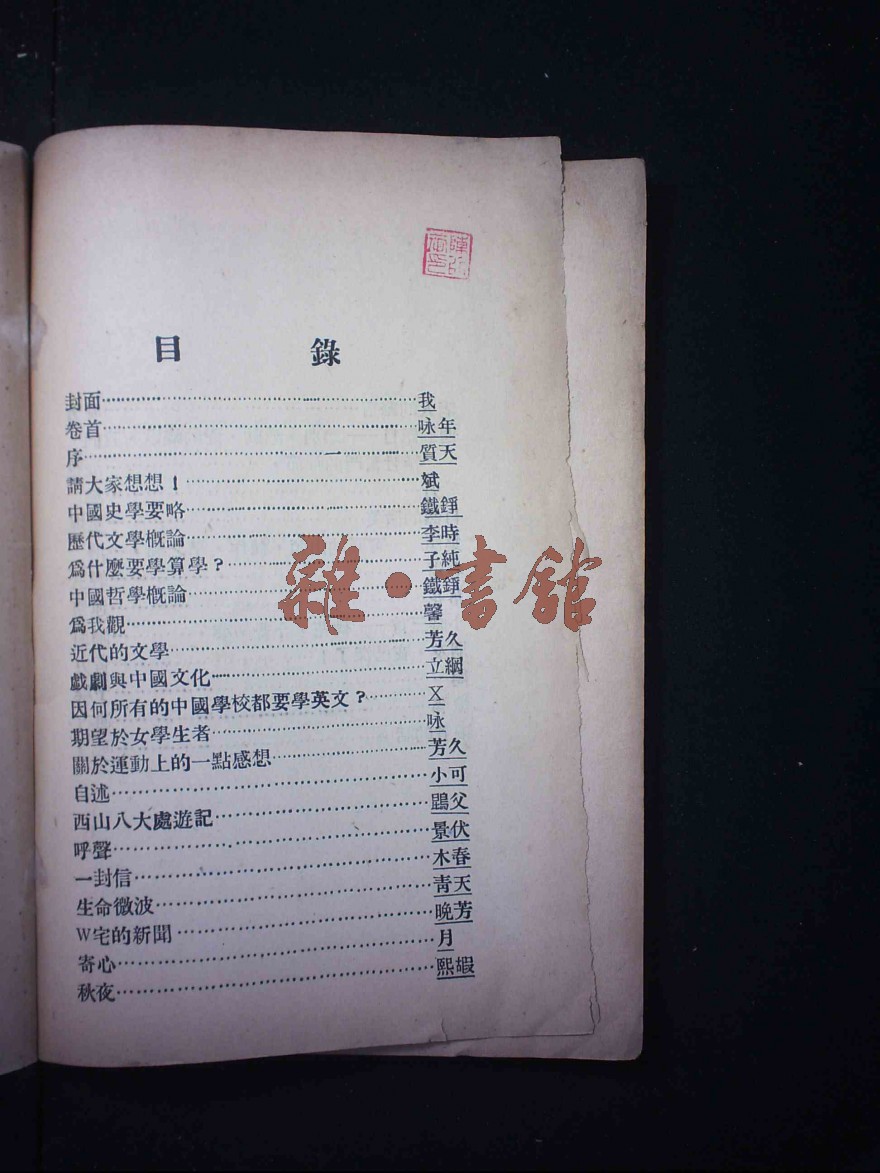 目錄
封面……我
卷首……咏年
序……質天
請大家想想!……斌
中國史學要略……鐵錚
歷代文學概論……李時
爲什麼要學算學?……子純
中國哲學概論……鐵錚
爲我觀……馨
近代的文學……芳久
戲劇與中國文化……立綱
因何所有的中國學校都要學英文?……X
期望於女學生者……咏
關於運動上的一點感想……芳久
自述……小可
西山八大處遊記……父
呼聲……景伏
一封信……木春
生命微波……青天
W宅的新聞……晚芳
寄心……月
秋夜……熙嘏
雜·書館